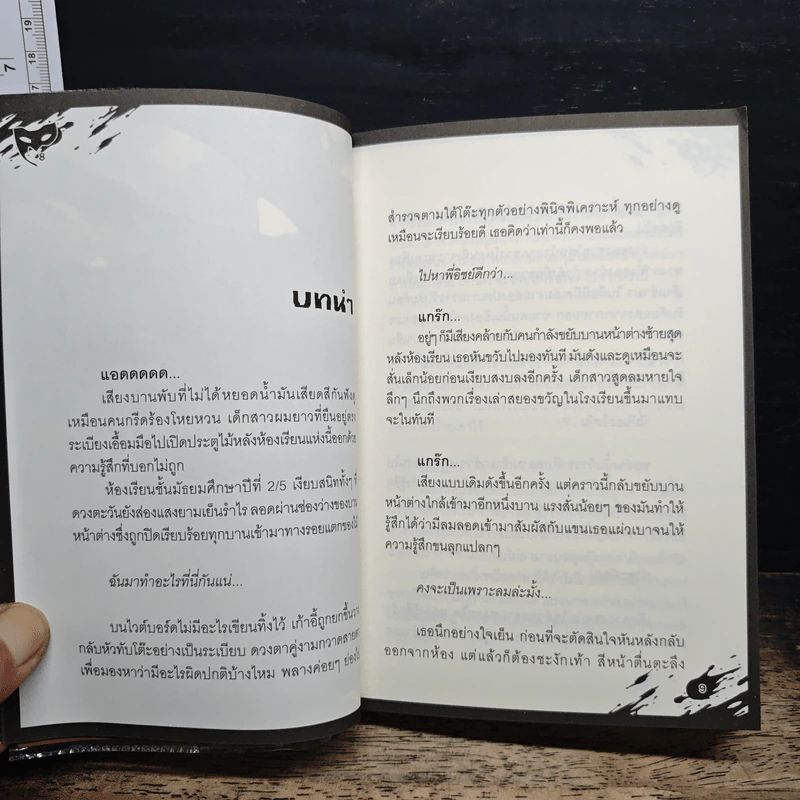 7
17
18
19
8
บทนำ
แอดดดดด...
เสียงบานพับที่ไม่ได้หยอดน้ำมันเสียดสีกันฟังดู
เหมือนคนกรีดร้องโหยหวน เด็กสาวผมยาวที่ยืนอยู่ตรง
ระเบียงเอื้อมมือไปเปิดประตูไม้หลังห้องเรียนแห่งนี้ออกด้วย
ความรู้สึกที่บอกไม่ถูก
ห้องเรียนชั้นมัธยมศึกษาปีที่ 2/5 เงียบสนิททั้งๆ ที่
ดวงตะวันยังส่องแสงยามเย็นรำไร ลอดผ่านช่องว่างของบาน
หน้าต่างซึ่งถูกปิดเรียบร้อยทุกบานเข้ามาทางรอยแตกของไม้
ฉันมาทำอะไรที่นี่กันแน่...
บนไวต์บอร์ดไม่มีอะไรเขียนทิ้งไว้ เก้าอี้ถูกยกขึ้นวาง
กลับหัวทับโต๊ะอย่างเป็นระเบียบ ดวงตาคู่งามกวาดสายตา
เพื่อมองหาว่ามีอะไรผิดปกติบ้างไหม พลางค่อยๆ ย่อง
สำรวจตามใต้โต๊ะทุกตัวอย่างพินิจพิเคราะห์ ทุกอย่างดู
เหมือนจะเรียบร้อยดี เธอคิดว่าเท่านี้ก็คงพอแล้ว
ไปหาพี่อิชย์ดีกว่า...
แกร๊ก...
อยู่ๆ ก็มีเสียงคล้ายกับคนกำลังขยับบานหน้าต่างซ้ายสุด
หลังห้องเรียน เธอหันขวับไปมองทันที มันดังและดูเหมือนจะ
สั่นเล็กน้อยก่อนเงียบสงบลงอีกครั้ง เด็กสาวสูดลมหายใจ
ลึกๆ นึกถึงพวกเรื่องเล่าสยองขวัญในโรงเรียนขึ้นมาแทบ
จะในทันที
แกร๊ก...
เสียงแบบเดิมดังขึ้นอีกครั้ง แต่คราวนี้กลับขยับบาน
หน้าต่างใกล้เข้ามาอีกหนึ่งบาน แรงสั่นน้อยๆ ของมันทำให้
รู้สึกได้ว่ามีลมลอดเข้ามาสัมผัสกับแขนเธอแผ่วเบาจนให้
ความรู้สึกขนลุกแปลกๆ
คงจะเป็นเพราะลมล่ะมั้ง...
เธอนึกอย่างใจเย็น ก่อนที่จะตัดสินใจหันหลังกลับ
ออกจากห้อง แต่แล้วก็ต้องชะงักเท้า สีหน้าตื่นตะลึง
๑